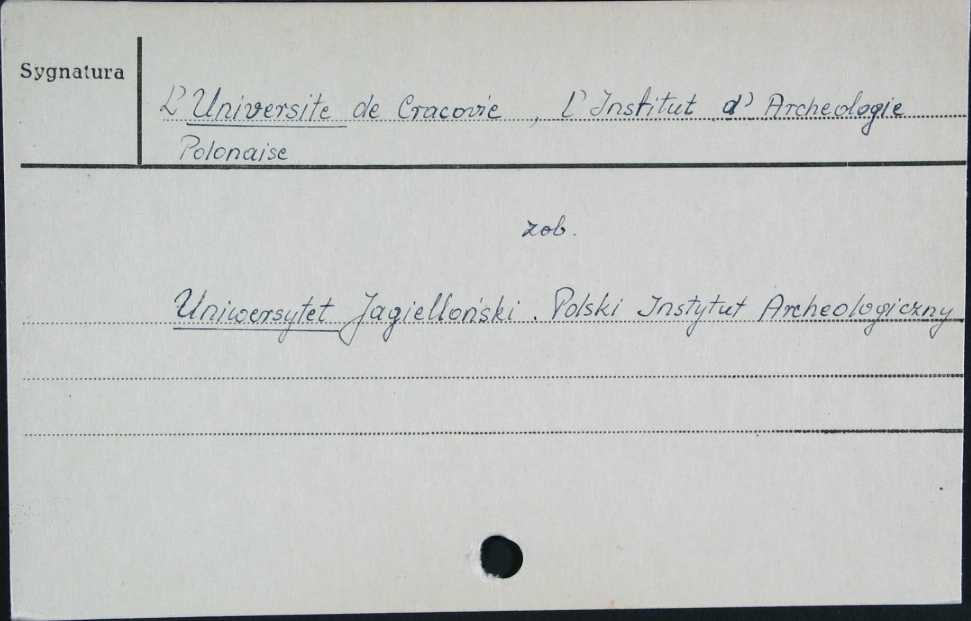 Sygnatura
L'Universite de Cracovie, l'Institut d'Archeologie
Polonaise
zob.
Uniwersytet Jagielloński. Polski Instytut Archeologiczny